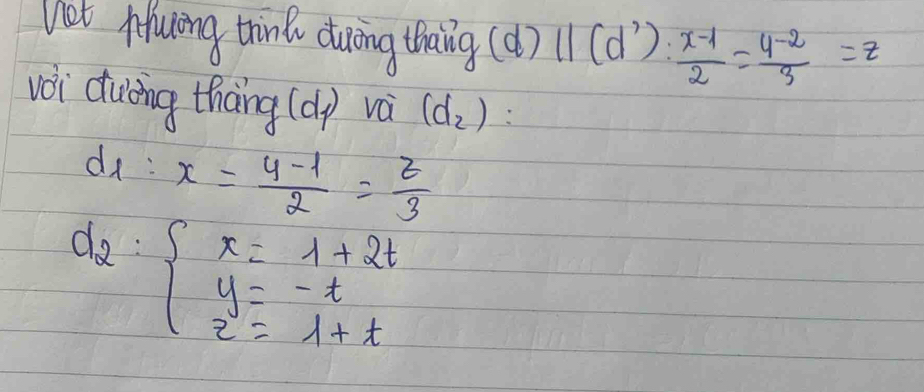 Viết phương trình đường thẳng (d) // (d'): \frac{x-1}{2} = \frac{y-2}{3} = z
với đường thẳng (d1) và (d2):
d1: x = \frac{y-1}{2} = \frac{z}{3}
d2: { x = 1 + 2t
y = -t
z = 1 + t